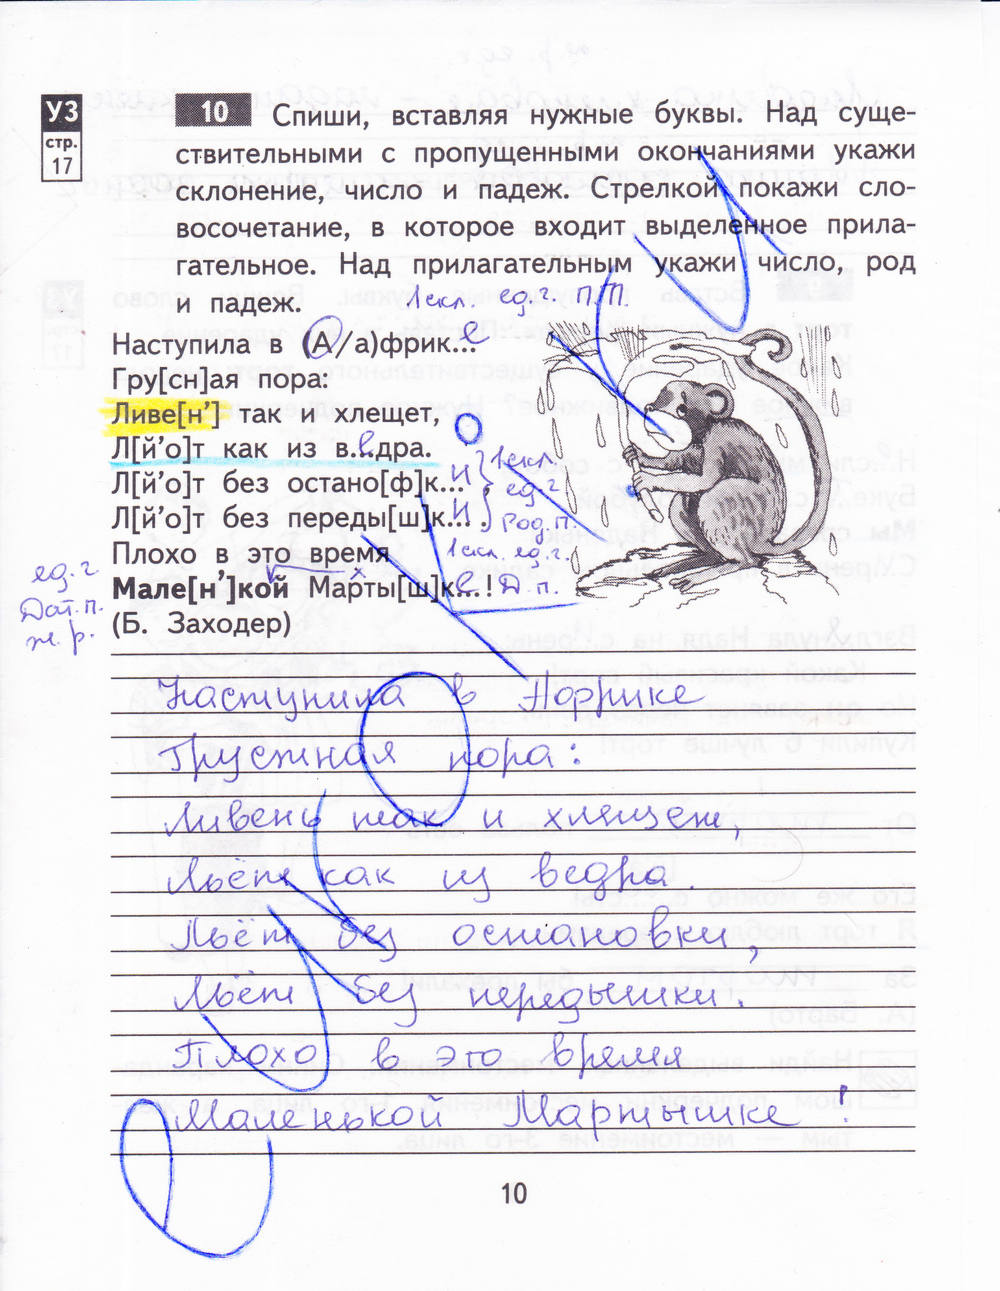 УЗ
стр.
17
10 Спиши, вставляя нужные буквы. Над суще-
ствительными с пропущенными окончаниями укажи
склонение, число и падеж. Стрелкой покажи сло-
восочетание, в которое входит выделенное прила-
гательное. Над прилагательным укажи число, род
и падеж.
1 скл. ед.ч. П.П.
Наступила в (А/а)фрик...е
Гру[сн]ая пора:
Ливе[н’] так и хлещет,
Л[й’о]т как из в.е.дра.
Л[й’о]т без остано[ф]к...и,
1 скл.
ед.ч
Л[й’о]т без переды[ш]к...и.
Род.п.
Плохо в это время
1 скл. ед.ч.
ед.ч
Мале[н’]кой Марты[ш]к...е! Д.п.
Дат.п.
ж.р.
(Б. Заходер)
Наступила в Африке
Грустная пора:
Ливень так и хлещет,
Льёт как из ведра.
Льёт без остановки,
Льёт без передышки.
Плохо в это время
Маленькой Мартышке!
10